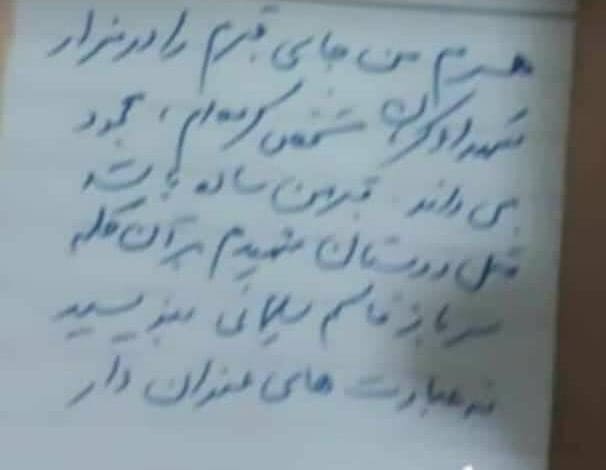 همسرم من جای قبرم را در مزار
شهدای کرمان مشخص کرده‌ام، محمود
می‌داند. قبر من ساده باشد
مثل دوستان شهیدم بر آن کلمه
سرباز قاسم سلیمانی بنویسید
نه عبارت‌های عنوان‌دار